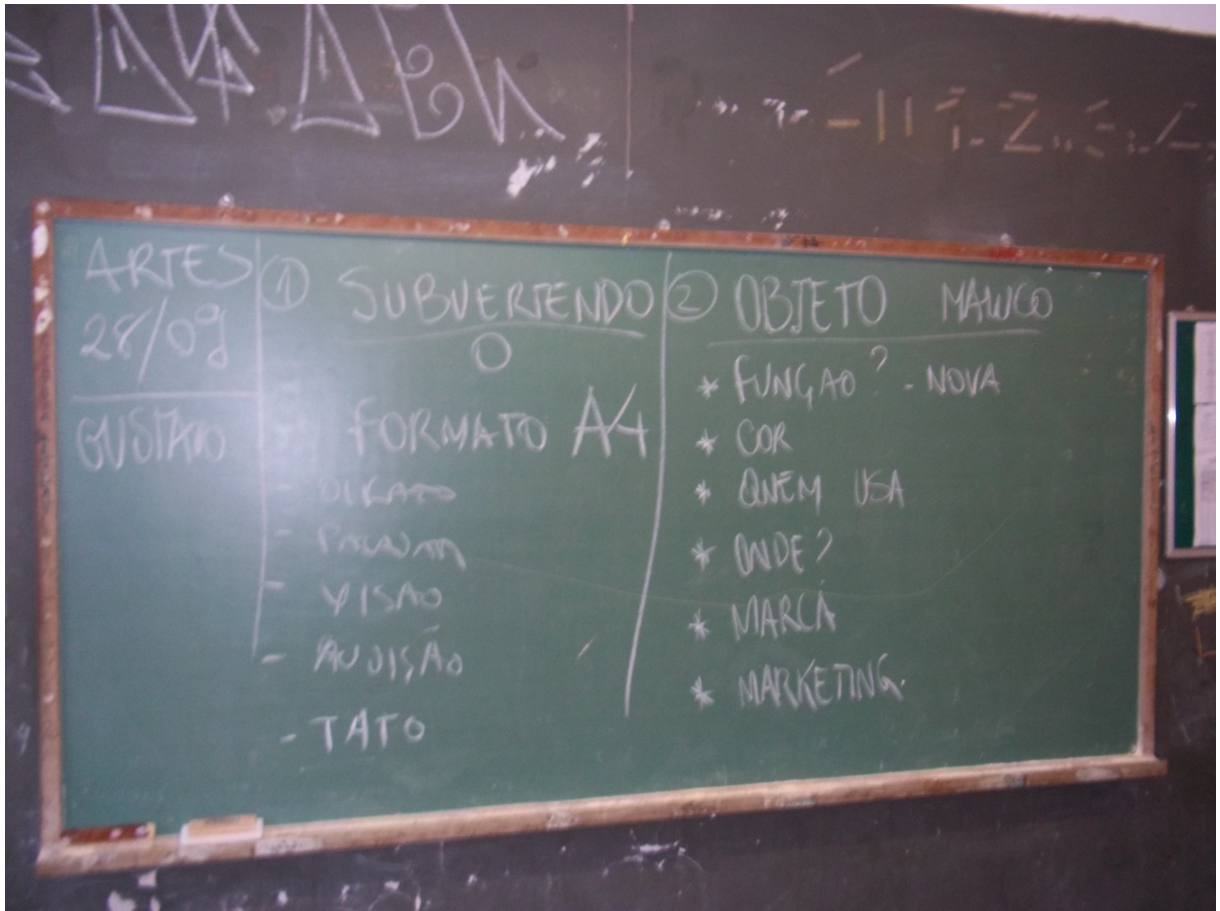 ARTES
28/09
GUSTAVO
① SUBVERTENDO
O
FORMATO A4
- OLFATO
- PALADAR
- VISÃO
- AUDIÇÃO
- TATO
② OBJETO MALUCO
* FUNÇAO? - NOVA
* COR
* QUEM USA
* ONDE?
* MARCA
* MARKETING.